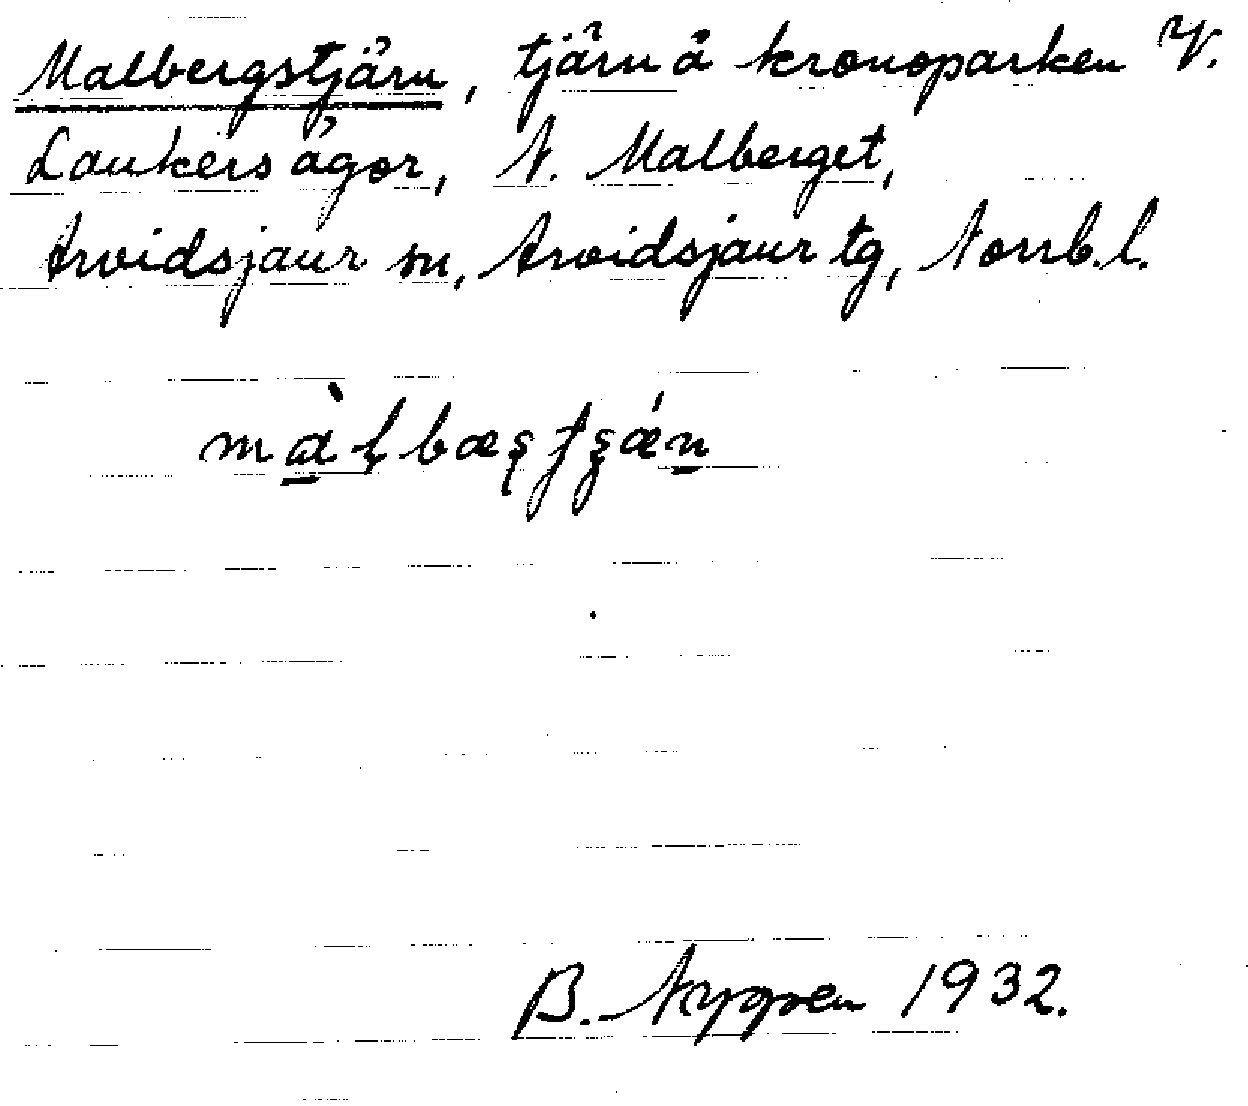 Malbergstjärn, tjärn å kronoparken V.
Laukers ägor, N. Malberget,
Arvidsjaur sn, Arvidsjaur tg, Norrb.l.
B. Nygren 1932.